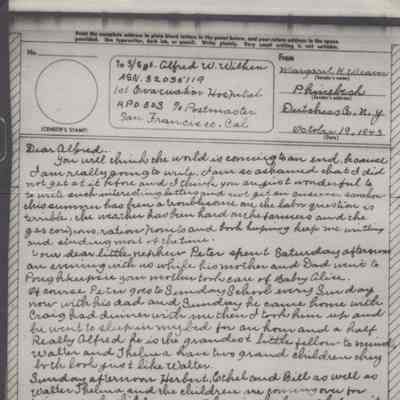 Print the complete address in plain block letters in the panel below, and your return address in the space
provided. Use typewriter, dark ink, or pencil. Write plainly. Very small writing is not suitable.
No.
To S/Sgt. Alfred W. Wilken
ASN. 32036119
1st Evacuation Hospital
APO 503 % Postmaster
San Francisco, Cal
(CENSOR'S STAMP)
From
Margaret H.
(Sender's name)
(Sender's address)
Dutchess Co. N.Y.
October 19, 1943
(Date)
Dear Alfred.
You will think the world is coming to an end, because
I am really going to write. I am so ashamed that I did
not get at it before and I think you are just wonderful to
to write such interesting letters and not get an answer somehow
this summer has been a troublesome one, the labor question is
terrible. the weather has been hard on the farmers and the
gas coupons, ration points and book keeping keep me writing
and studing most of the time.
your dear little nephew Peter spent Saturday afternoon
an evening with us while his mother and Dad went to
Poughkeepsie your mother took care of Baby Alice.
Of course Peter goes to Sunday School every Sunday
now with his dad and Sunday he came home with
Craig had dinner with me then I took him up and
he went to sleep in my bed for an hour and a half
Really Alfred he is the grandest little fellow to mind
Walter and Thelma have two grand children they
both look just like Walter.
Sunday afternoon Herbert, Ethel and Bill as well as
Walter Thelma and the children me over for